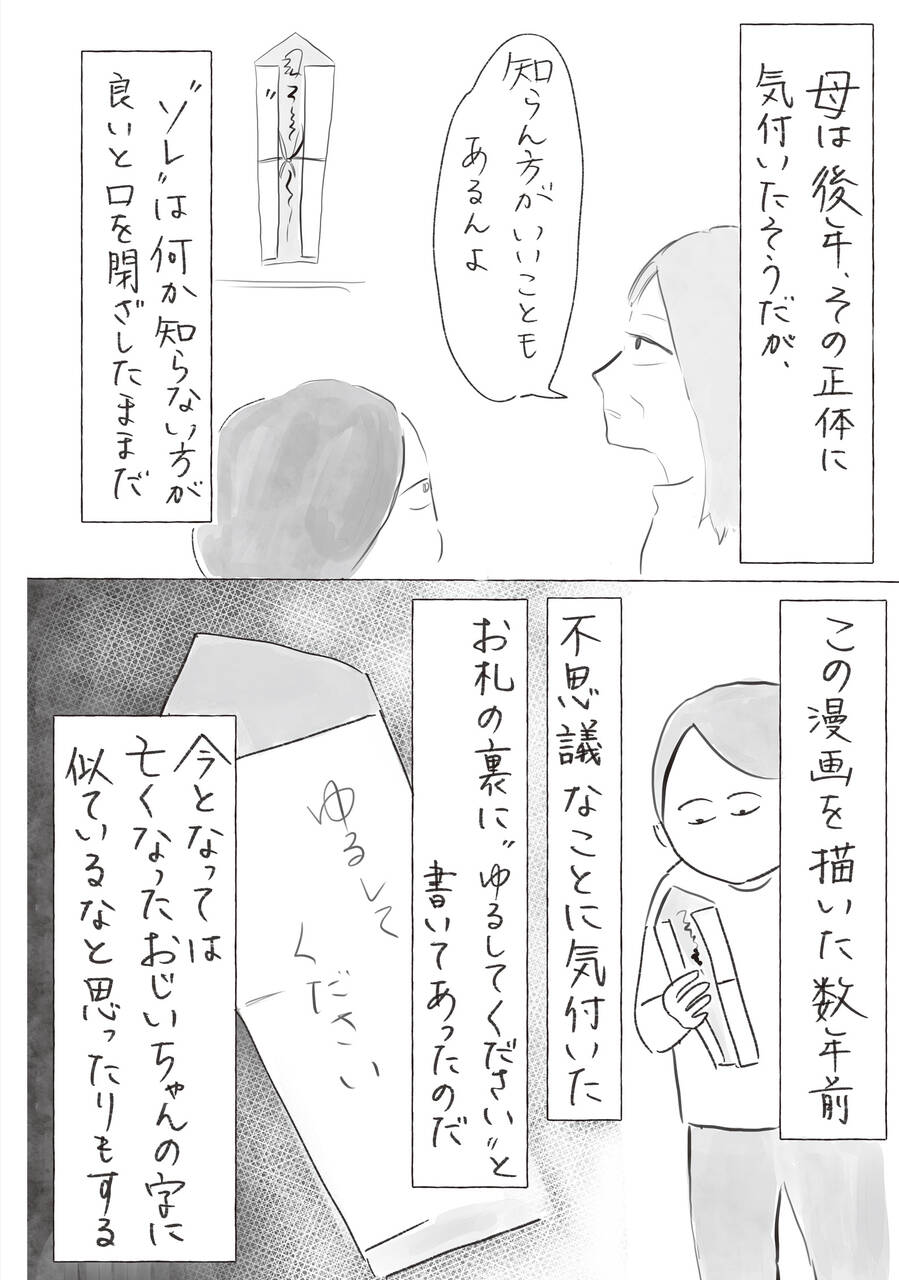 母は後年、その正体に
気付いたそうだが、
知らん方がいいことも
あるんよ
"ソレ"は何か知らない方が
良いと口を閉ざしたままだ
この漫画を描いた数年前
不思議なことに気付いた
お札の裏に"ゆるしてください"と
書いてあったのだ
ゆるして
ください
今となっては
亡くなったおじいちゃんの字に
似ているなと思ったりもする